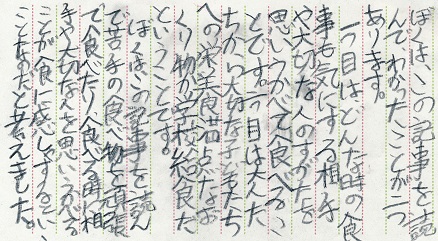 ぼくは、この記事を読
んで、わかったことが二つ
あります。
一つ目は、どんな時の食
事も気にする相手
や大切な人のすがたを
思いうかべて食べるこ
とです。二つ目は大人た
ちから大切な子どもたち
への栄養満点な
くり物が学校給食だ
ということです。
ぼくはこの記事を読ん
で苦手の食べ物を頑張っ
て食べたり食べる時に相
手や大切な人を思いうかべる
ことが食に感しゃするとい
ことなんだと考えました。